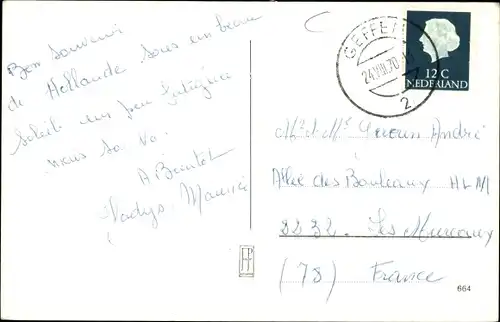 Bon souvenir
de Hollande sous un beau
soleil un peu fatigué
mais sa va.
A Bientot
Nadys, Maurice
GEFFEN
24.VIII.70
2
12 C
NEDERLAND
Mr et Me André
Allée des Bouleaux HLM
Les Mureaux
(78) France
664